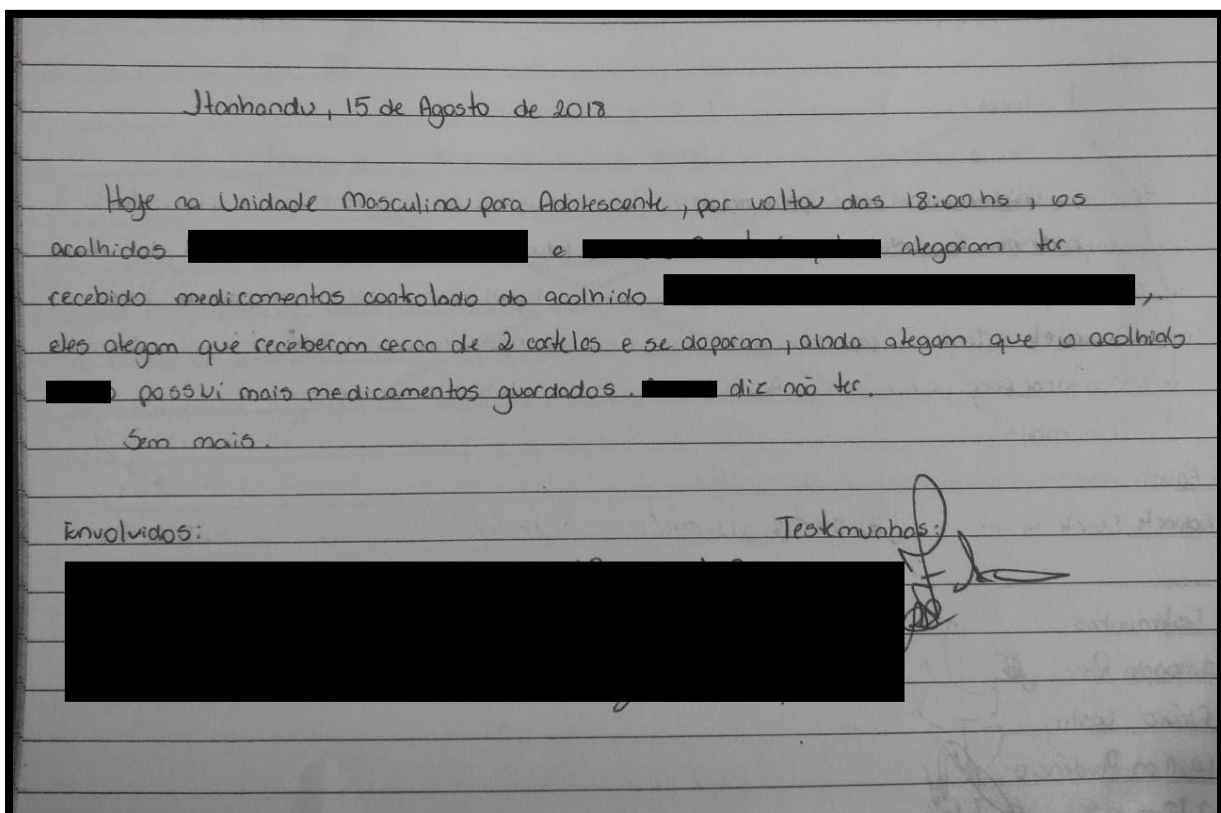 Itanhandu, 15 de Agosto de 2018
Hoje na Unidade Masculina para Adolescente, por volta das 18:00hs, os
acolhidos e alegaram ter
recebido medicamentos controlado do acolhido ,
eles alegam que receberam cerca de 2 cartelas e se doparam, ainda alegam que o acolhido
possui mais medicamentos guardados. diz não ter.
Sem mais.
Envolvidos: Testemunhas: